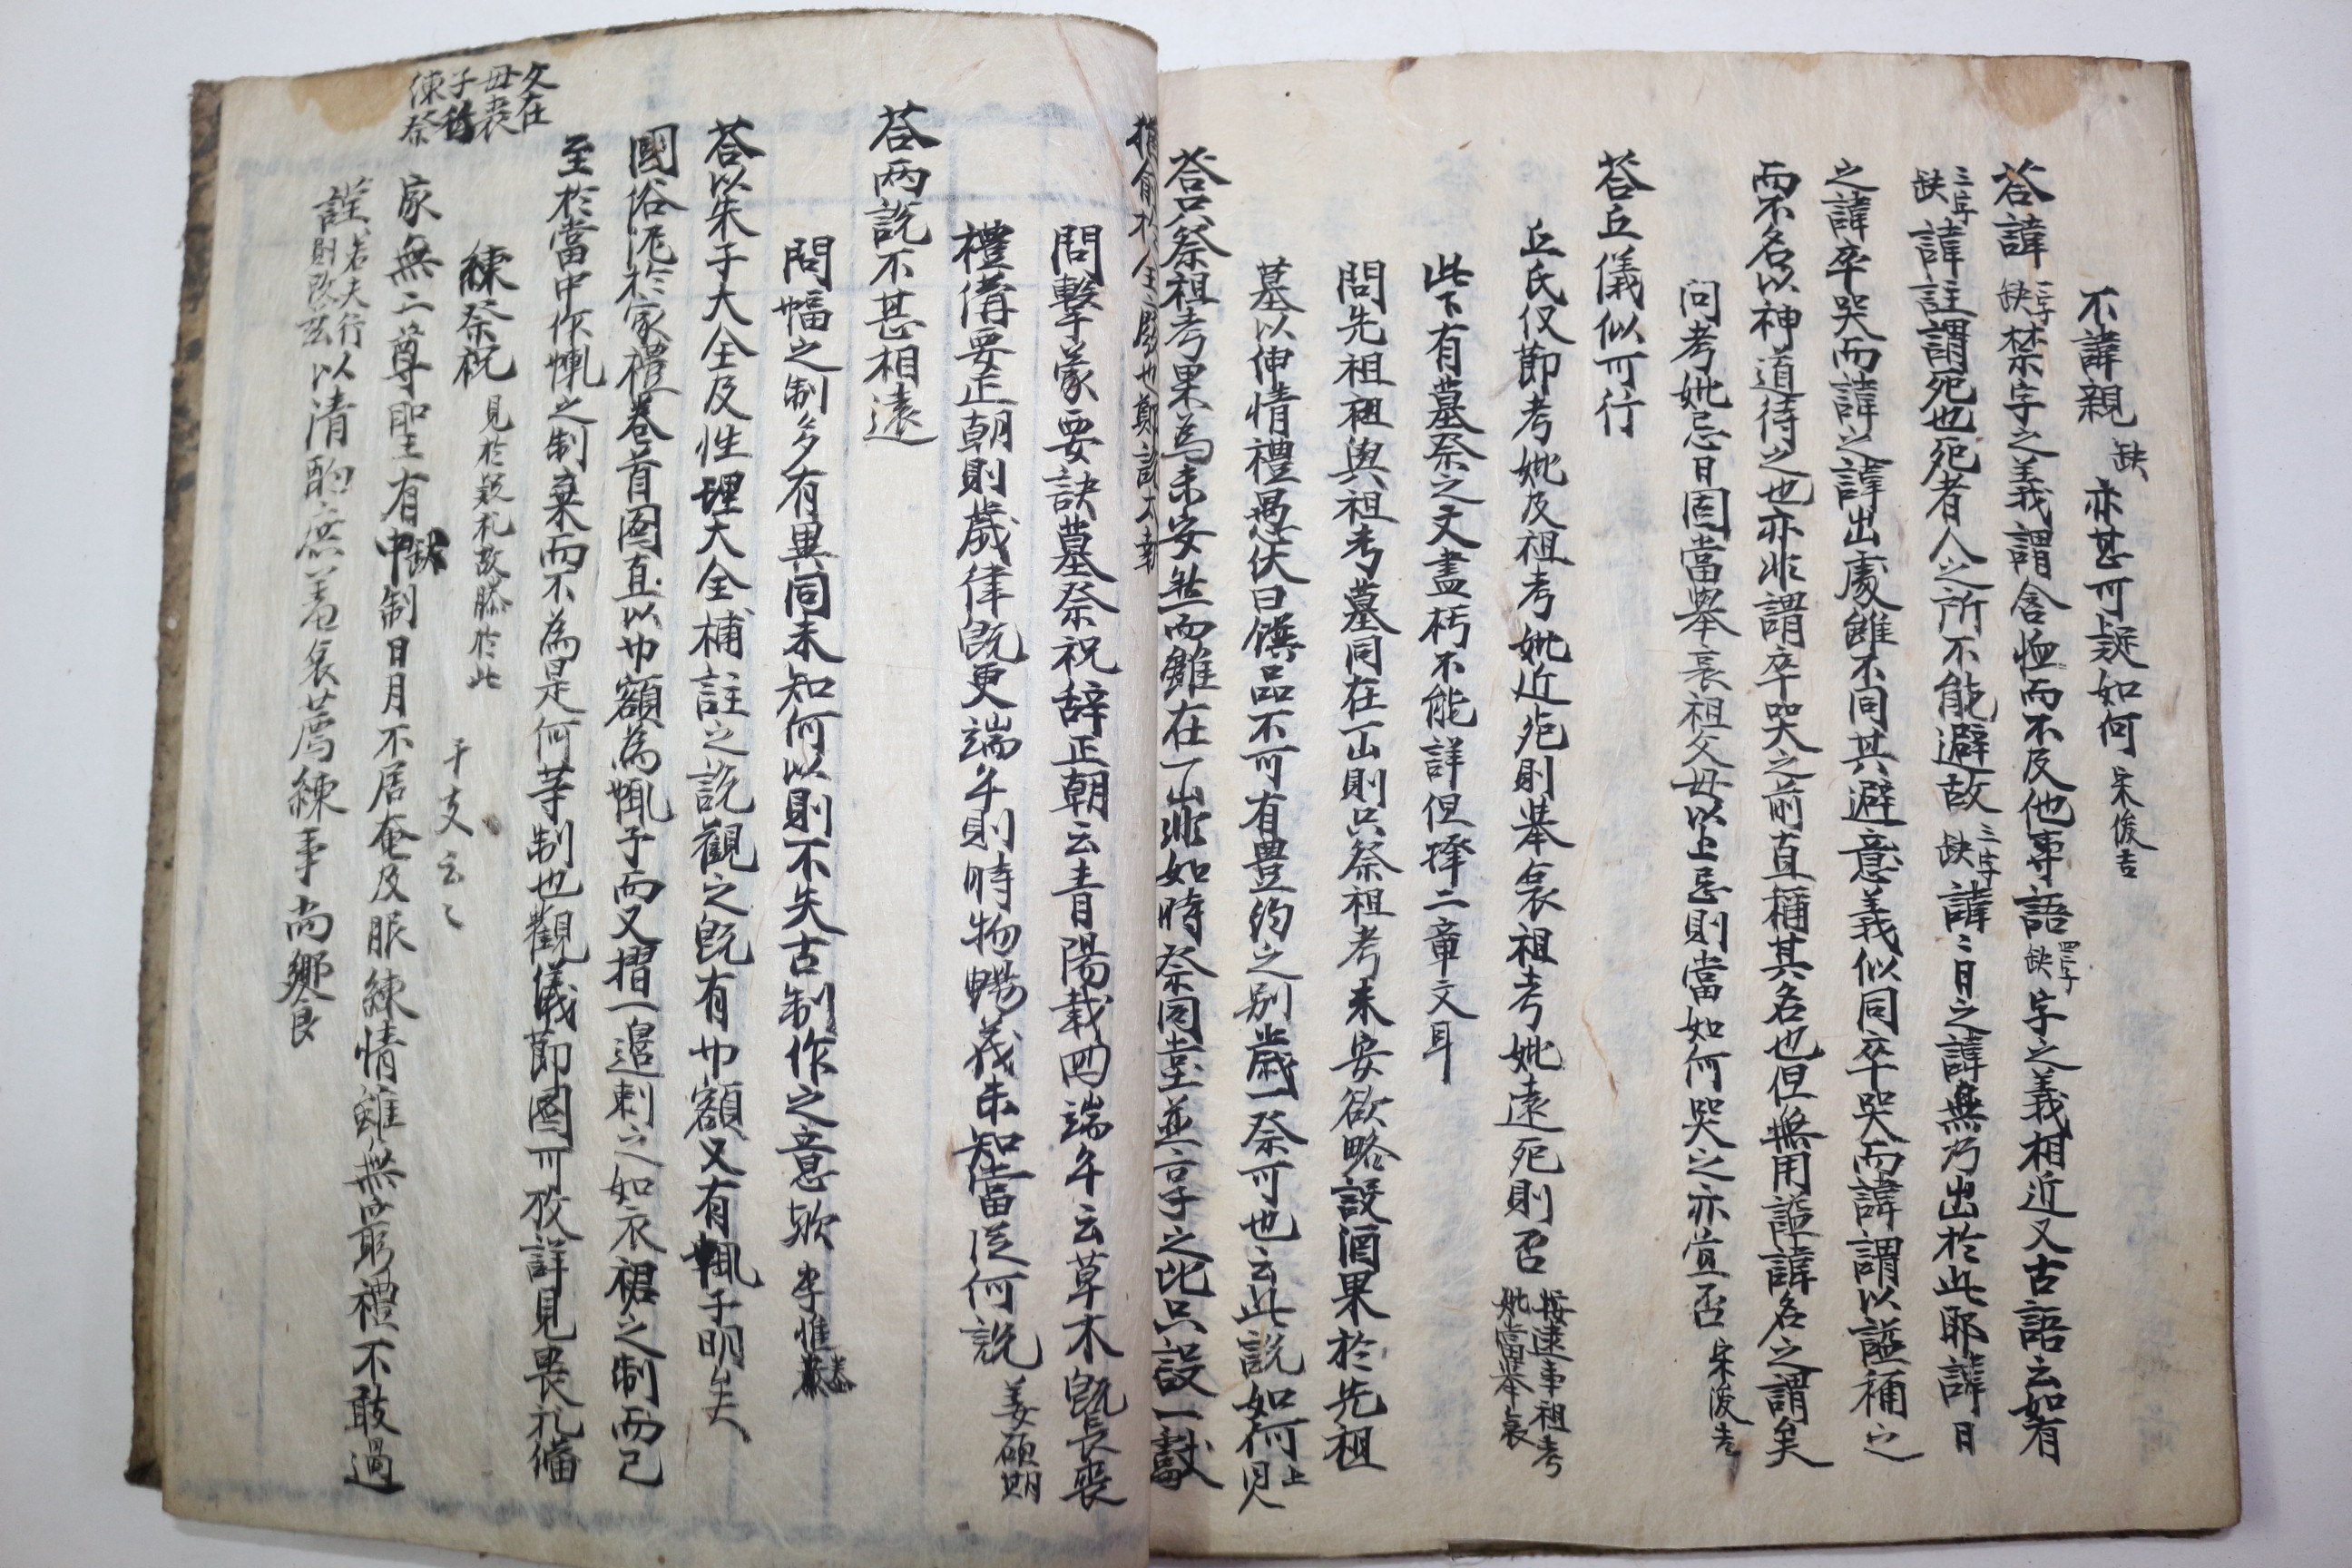 不諱親 缺 亦甚可疑如何 宋俊吉
答諱 二字缺 禁字之義謂含恤而不及他事語 四字缺 字之義相近又古語云如有
三字缺 諱註謂死也死者人之所不能避故 三字缺 諱二日之諱無乃出於此耶諱日
之諱卒哭而諱之諱出處雖不同其避意義似同卒哭而諱謂以諡稱之
而不名以神道待之也亦非謂卒哭之前直稱其名也但無用諡諱名之謂矣
问考妣忌日固當舉哀祖父母以上忌則當如何哭之亦宜否 宋浚吉
答丘儀似可行
丘氏仪節考妣及祖考妣近死則举哀祖考妣遠死則否 按逮事祖考妣當举哀
此下有墓祭之文盡朽不能詳但擇二章文耳
問先祖祖與祖考墓同在一山則只祭祖考未安欲略設酒果於先祖
墓以伸情禮愚伏曰饌品不可有豊約之别歲一祭可也云此說如何 見上
答只祭祖考果爲未安然而雖在一山非如時祭同堂並享之比只設一獻
問擊蒙要訣墓祭祝辞正朝云青陽載回端午云草木旣長丧
禮備要正朝則歲律旣更端午則時物暢茂未知當從何說 姜碩期
答两說不甚相遠
問幅之制多有異同未知何以則不失古制作之意欤 李惟
答以朱子大全及性理大全補註之說觀之旣有巾額又有㡇子明矣
國俗泥於家禮卷首图直以巾額為㡇子而又摺一邉刺之如衣裙之制而已
至於當中作㡇之制棄而不為是何等制也觀儀節圖可攷詳見丧礼備
父在母丧子行練祭
練祭祝 見於疑礼故謄於此 干支云々
家無二尊聖有中制日月不居奄及服練情雖無窮禮不敢過
謹 若夫行則改玆 以清酌庶羞哀薦練事尚饗